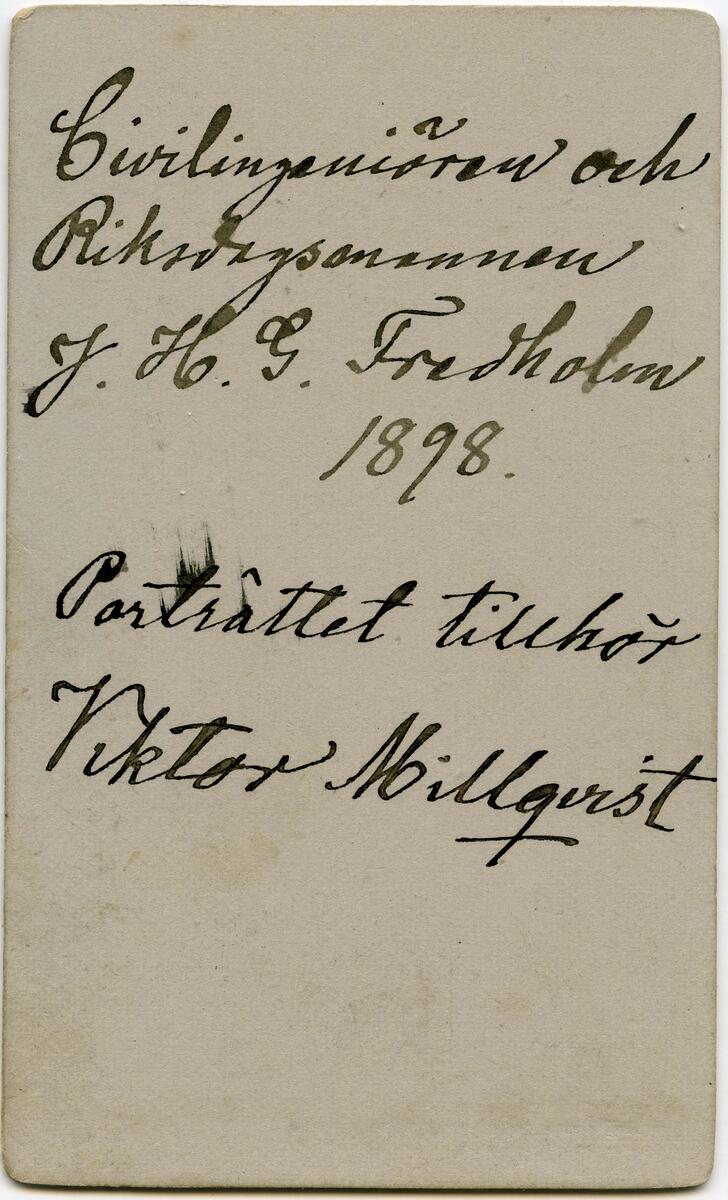 Civilingeniören och
Riksdagsmannen
J. H. G. Fredholm
1898.
Porträttet tillhör
Viktor Millqvist